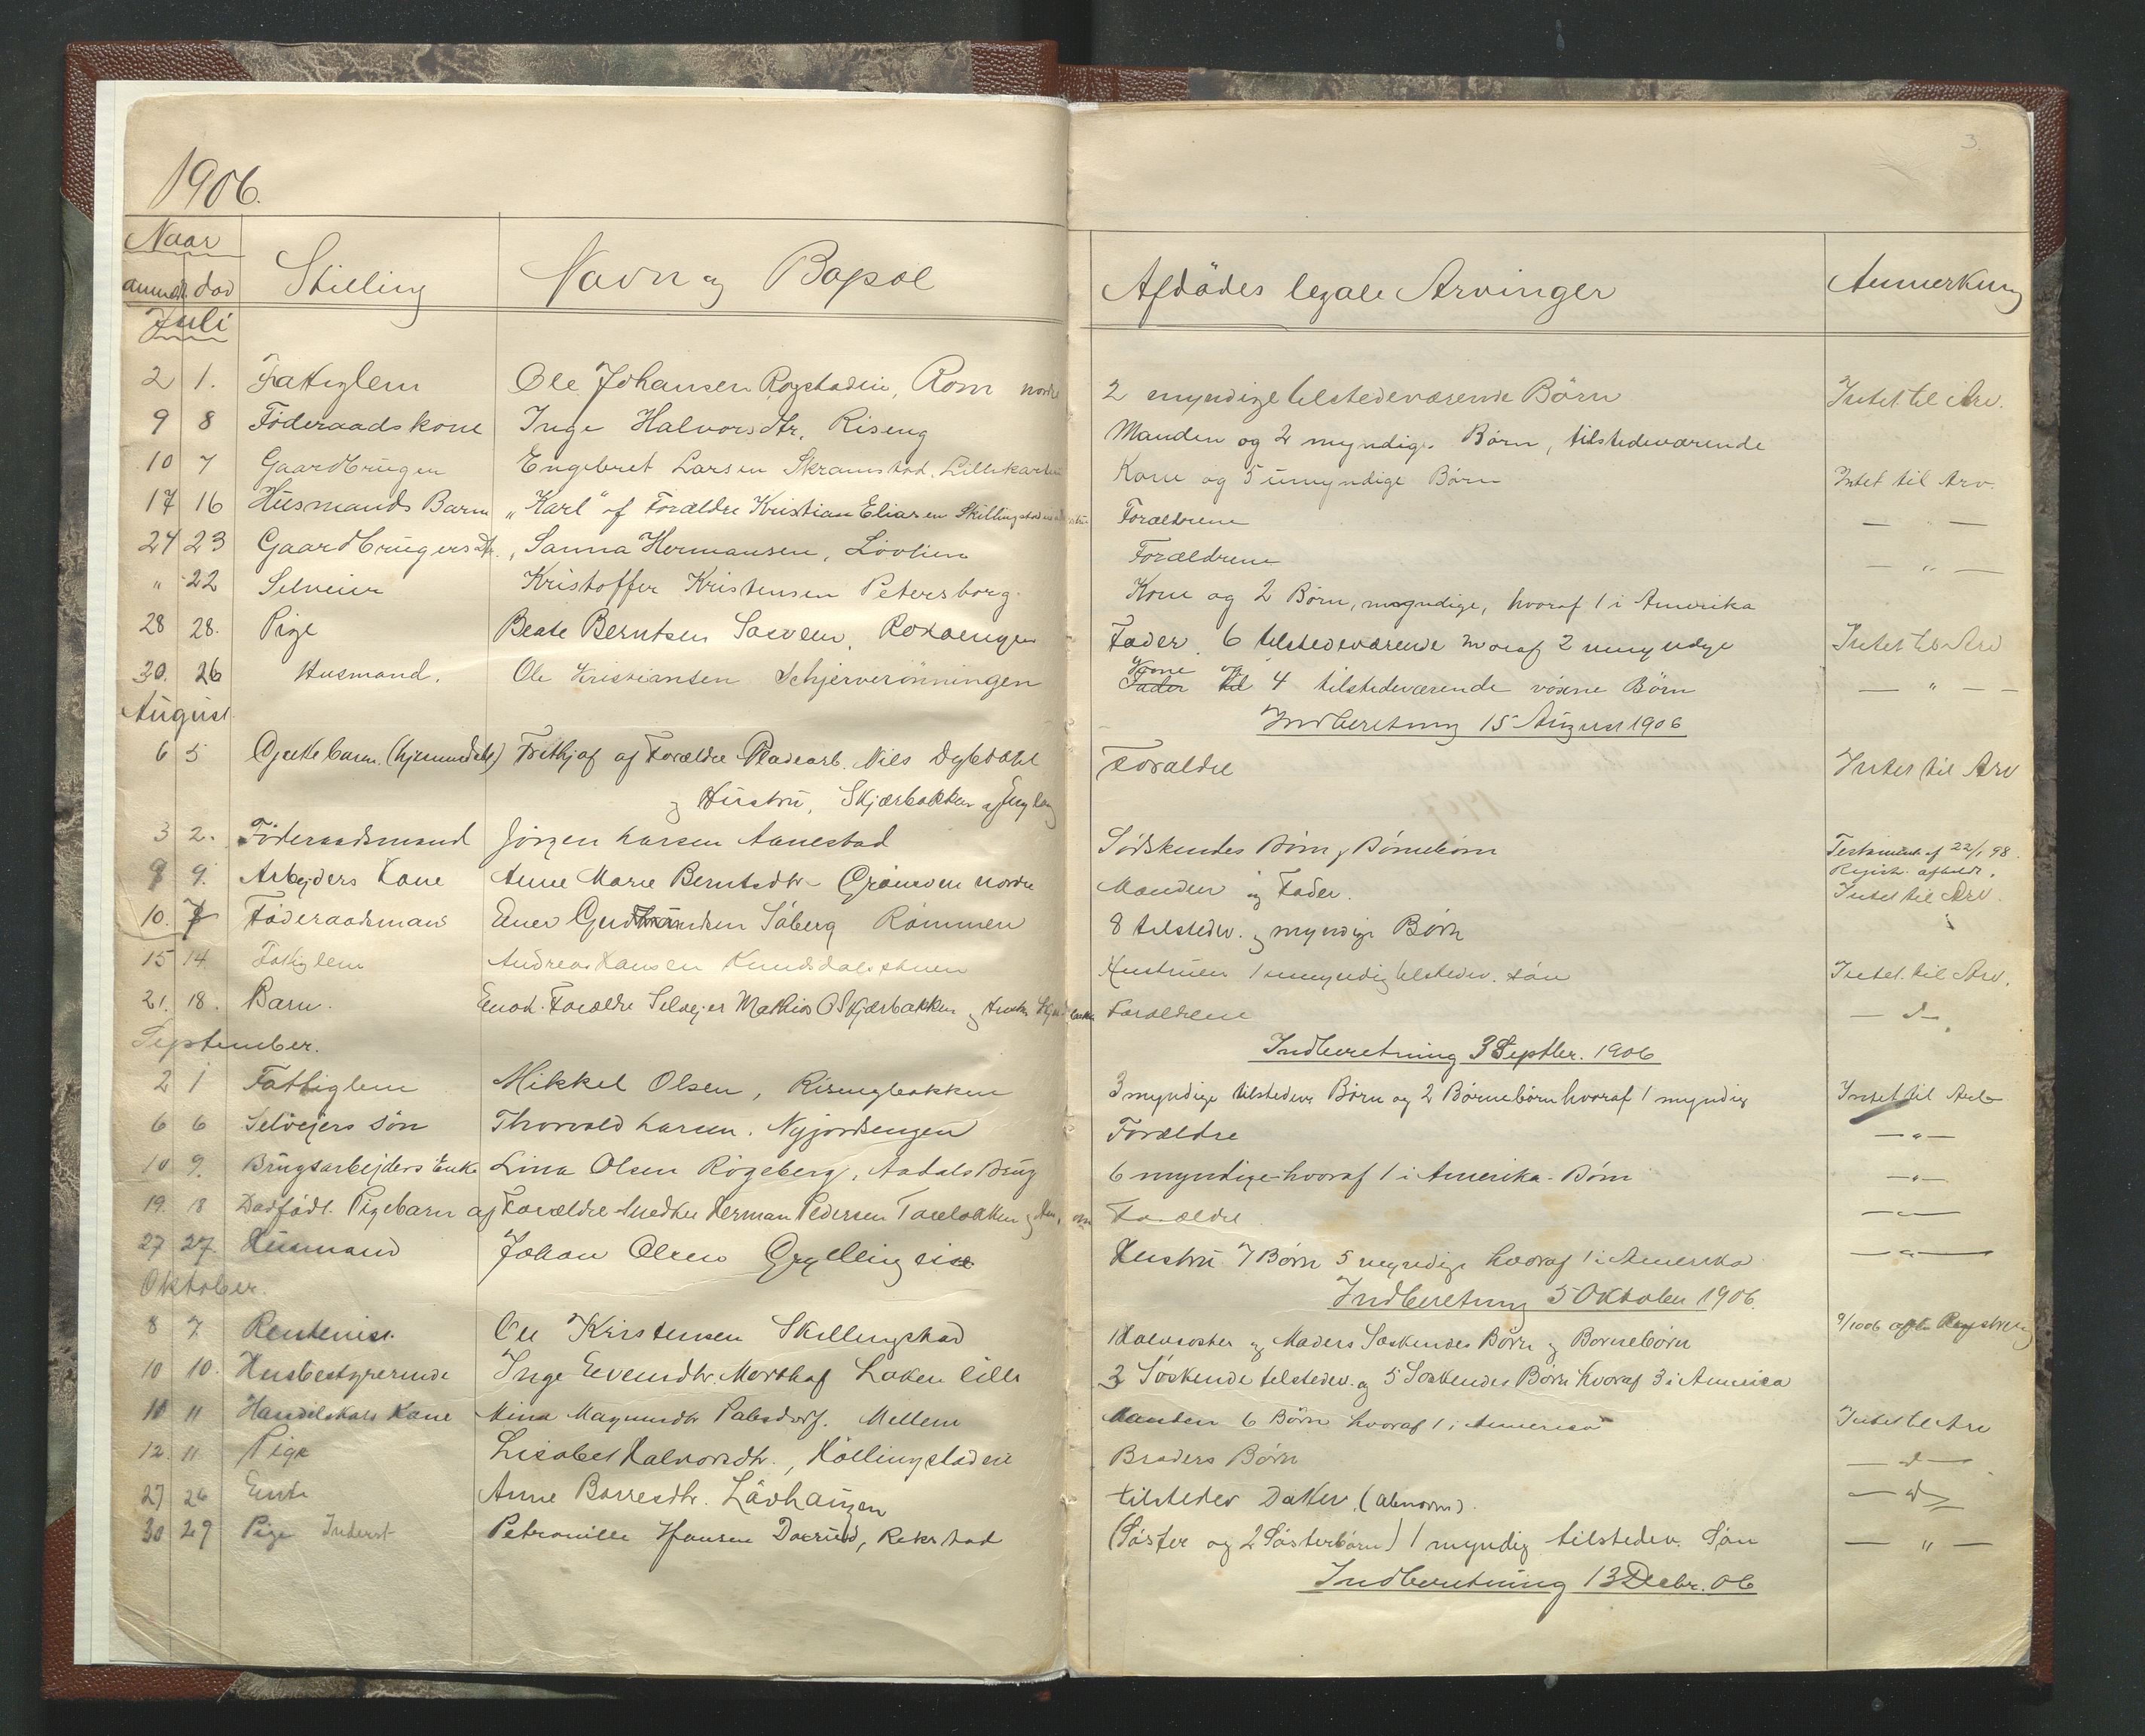 3.
1906.
Naar
anmeldt. død Stilling Navn og Bopæl Afdødes legale Arvinger Anmerkning
Juli
2 1. Fattiglem Ole Johansen Rogstadeie, Rom nordre 2 myndige tilstedeværende Børn Intet til Arv.
9 8 Föderaadskone Inge Halvorsdtr, Riseng Manden og 2 myndige Børn, tilstedeværende
10 7 Gaardbruger Engebret Larsen Skramstad, Kone og 5 umyndige Børn Intet til Arv.
17 16 Husmands Barn „Karl" af Forældre Kristian Eliasen Forældrene — " —
24 23 Gaardbrugersdtr., Sanna Hermansen, Lövlien Forældrene — " —
" 22 Selveier Kristoffer Kristensen Petersborg. Kone og 2 Börn, myndige, hvoraf 1 i Amerika
28 28. Pige Beate Berntsen Sveen, Fader. 6 tilstedeværende hvoraf 2 umyndige Intet til Arv
30. 26 Husmand. Ole Kristiansen Schjerverönningen Fader Kone og 4 tilstedeværende vöxne Börn — " —
August
Indberetning 15 August 1906
6 5 Barn (hjemmedøbt) Frithjof af Forældre Nils Dybdahl Forældre Intet til Arv
og Hustru, Skjærbakken
3 2. Föderaadsmand Jörgen Larsen Aanestad Sødskendes Børn og Børnebørn Testament af 22/1 98.
Registr. afholdt.
9 9. Arbejders Kone Anne Marie Berntsdtr Grønsveen nordre Manden og Fader. Intet til Arv.
10. 7 Føderaadsmand Ener Gudmundsen Söberg Rømmen 8 tilstedev. og myndige Børn
15 14 Fattiglem Andreas Hansen Knudsdalsstuen Hustruen 1 umyndig tilstedev. søn Intet til Arv.
21. 18. Barn. Forældre Selvejer Mathias O Skjærbakken og Hustru Forældrene — d —
September.
Indberetning 3 Septbr. 1906
2 1 Fattiglem Mikkel Olsen, Risengbakken 3 myndige tilstedev. Børn og 2 Børnebørn hvoraf 1 myndig Intet til Arv
6 6 Selvejers søn Thorvald Larsen. Nyjordsengen Forældre — " —
10 9. Brugsarbejders Enke Lina Olsen Rögeberg, Aadals Brug 6 myndige hvoraf 1 i Amerika. Börn — " —
19. 18 Dødfødt. Pigebarn af Forældre Snedker Herman Pedersen Forældre — " —
27 27. Husmand Johan Olsen Gryllingeie Hustru 7 Børn 5 myndige hvoraf 1 i Amerika — " —
Oktober.
Indberetning 5 Oktober 1906.
8 7. Rentenist. Ole Kristensen Skillingstad 1 Halvsøster og Moders Søskendes Børn og Børnebørn 9/10 06 Registrering
10 10. Husbestyrerinde Inge Evensdtr. Løken lille 3 Söskende tilstedev. og 5 Søskendes Børn hvoraf 3 i America
11 11 Kone Mina Magnusdtr Mellem Manden 6 Børn hvoraf 1 i America Intet til Arv
12. 11 Pige Lisabet Halvorsdtr., Höllingstadeie Broders Børn — d —
27 26 Enke Anne Borresdtr. Lövhaugen tilstedev Datter. (abnorm). — d —
30 29 Pige Inderst Petronille Hansen, Rekstad (Söster og 2 Sösterbörn) 1 myndig tilstedev. Søn — " —
Indberetning 13 Decbr. 06